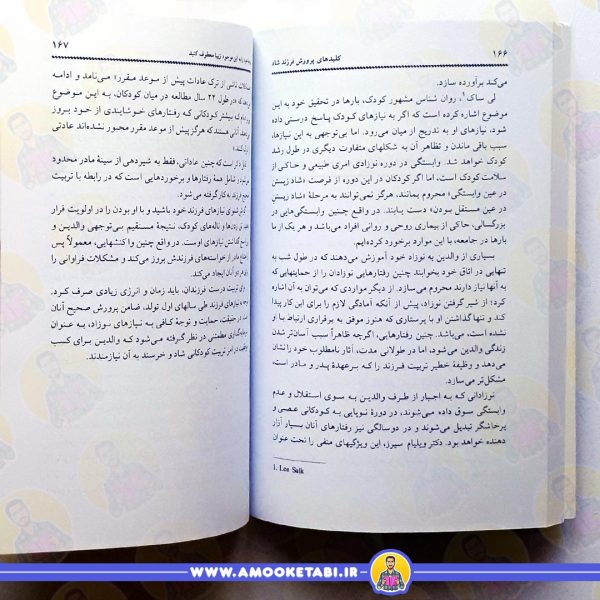 ۱۶۶
کلیدهای پرورش فرزند شاد
می‌کند برآورده سازد.
لی ساک۱، روان شناس مشهور کودک، بارها در تحقیق خود به این
موضوع اشاره کرده است که اگر به نیازهای کودک پاسخ درستی داده
شود، نیازهای او به تدریج از میان می‌رود. اما بی‌توجهی به این نیازها،
سبب باقی ماندن و تظاهر آن به شکلهای متفاوت دیگری در طول رشد
کودک خواهد شد. وابستگی در دوره نوزادی امری طبیعی و حاکی از
سلامت کودک است، اما اگر کودکان در این دوره از فرصت «شاد زیستن
در عین وابستگی» محروم بمانند، هرگز نمی‌توانند به مرحلهٔ «شاد زیستن
در عین مستقل بودن» دست یابند. در واقع چنین وابستگی‌هایی در
بزرگسالی، حاکی از بیماری روحی و روانی افراد می‌باشد و هر یک از ما
بارها در جامعه، با این موارد برخورد کرده‌ایم.
بسیاری از والدین به نوزاد خود آموزش می‌دهند که در طول شب به
تنهایی در اتاق خود بخوابند چنین رفتارهایی نوزادان را از حمایتهایی که
به آن نیاز دارند محروم می‌سازد. از دیگر مواردی که می‌توان به آن اشاره
کرد؛ از شیر گرفتن نوزاد، پیش از آنکه آمادگی لازم را برای این کار پیدا
کند و تنها گذاشتن او با پرستاری که هنوز موفق به برقراری ارتباط با او
نشده است، می‌باشد. چنین رفتارهایی، اگرچه ظاهراً سبب آسان‌تر شدن
زندگی والدین می‌شود، اما در طولانی مدت، آثار نامطلوب خود را نشان
می‌دهد و وظیفهٔ خطیر تربیت فرزند را کـه برعهدهٔ پدر و مادر است،
مشکل‌تر می‌سازد.
نوزادانی که به اجبار از طرف والدین به سوی استقلال و عدم
وابستگی سوق داده می‌شوند، در دورهٔ نوپایی به کودکانی عصبی و
پرخاشگر تبدیل می‌شوند و در دوسالگی نیز رفتارهای آنان بسیار آزار
دهنده خواهد بود. دکتر ویلیام سیرز، این ویژگیهای منفی را تحت عنوان
1. Lee Salk
۱۶۷
به این موجود زیبا معطوف کنید
ناشی از ترک عادات پیش از موعد مقرر» می‌نامد و ادامه
در طول ۲۲ سال مطالعه در میان کودکان، به این موضوع
که بیشتر کودکانی که رفتارهای خوشایندی از خود بروز
آنانی هستند که هرگز پیش از موعد مقرر مجبور نشده‌اند عادتی
لازم است که چنین عاداتی، فقط به شیردهی از سینهٔ مادر محدود
شامل همهٔ رفتارها و برخوردهایی است که در رابطه با تربیت
فرزند به کار گرفته می‌شود.
نیازهای فرزند خود باشید و با او بودن را در اولویت قرار
و ناله‌های کودک، نتیجهٔ مستقیم بی‌توجهی والدین و
نیازهای اوست. در واقع چنین واکنشهایی، معمولاً پس
از خواسته‌های فرزندش بروز می‌کند و مشکلات فراوانی را
آنان ایجاد می‌کند.
تربیت درست فرزندان، باید زمان و انرژی زیادی صرف کرد.
نیازهای فرزند طی سالهای اول تولد، ضامن پرورش صحیح آنان
در حقیقت، حمایت و توجهٔ کافی به نیازهای نوزاد، به عنوان
مطمئنی در نظر گرفته می‌شود که والدین برای کسب
در امر تربیت کودکانی شاد و خرسند به آن نیازمندند.
WWW.AMOOKETABI.IR